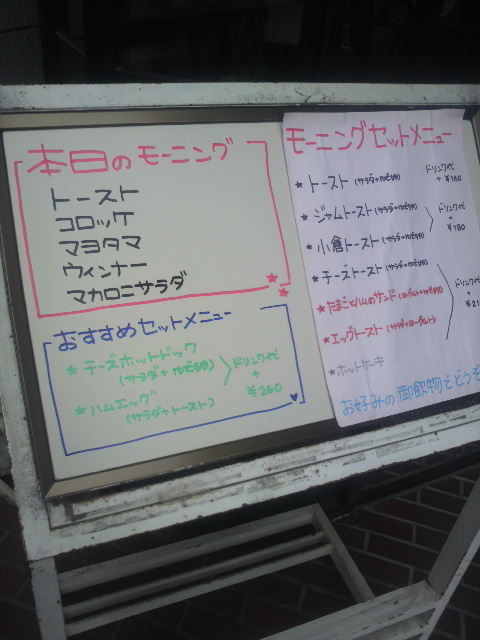 本日のモーニング
トースト
コロッケ
マヨタマ
ウィンナー
マカロニサラダ
おすすめセットメニュー
★チーズホットドック
(サラダ+ゆで卵)
★ハムエッグ
(サラダ+トースト)
ドリンク代
+
¥260
モーニングセットメニュー
★トースト(サラダ+ゆで卵)
ドリンク代
+¥160
★ジャムトースト(サラダ+ゆで卵)
★小倉トースト(サラダ+ゆで卵)
ドリンク代
+
¥180
★チーズトースト(サラダ+ゆで卵)
★たまごとハムのサンド(ヨーグルト+ゆで卵)
★エッグトースト(サラダ+ヨーグルト)
★ホットケーキ
ドリンク代
+
お好みの御飲物をどうぞ